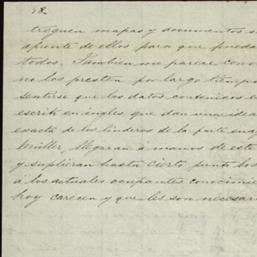 18.
treguen mapas y documentos s
apunte de ellos para que pueda
todos. Tambien me parece conv
no los presten por largo tiempo
sentirse que los datos contenidos e
escrito en ingles que dan una idea
exacta de los linderos de la parte
Müller, llegaran á manos de este
y supliran hasta cierto punto los
á los actuales ocupantes conocimie
hoy carecen y que les son necesar